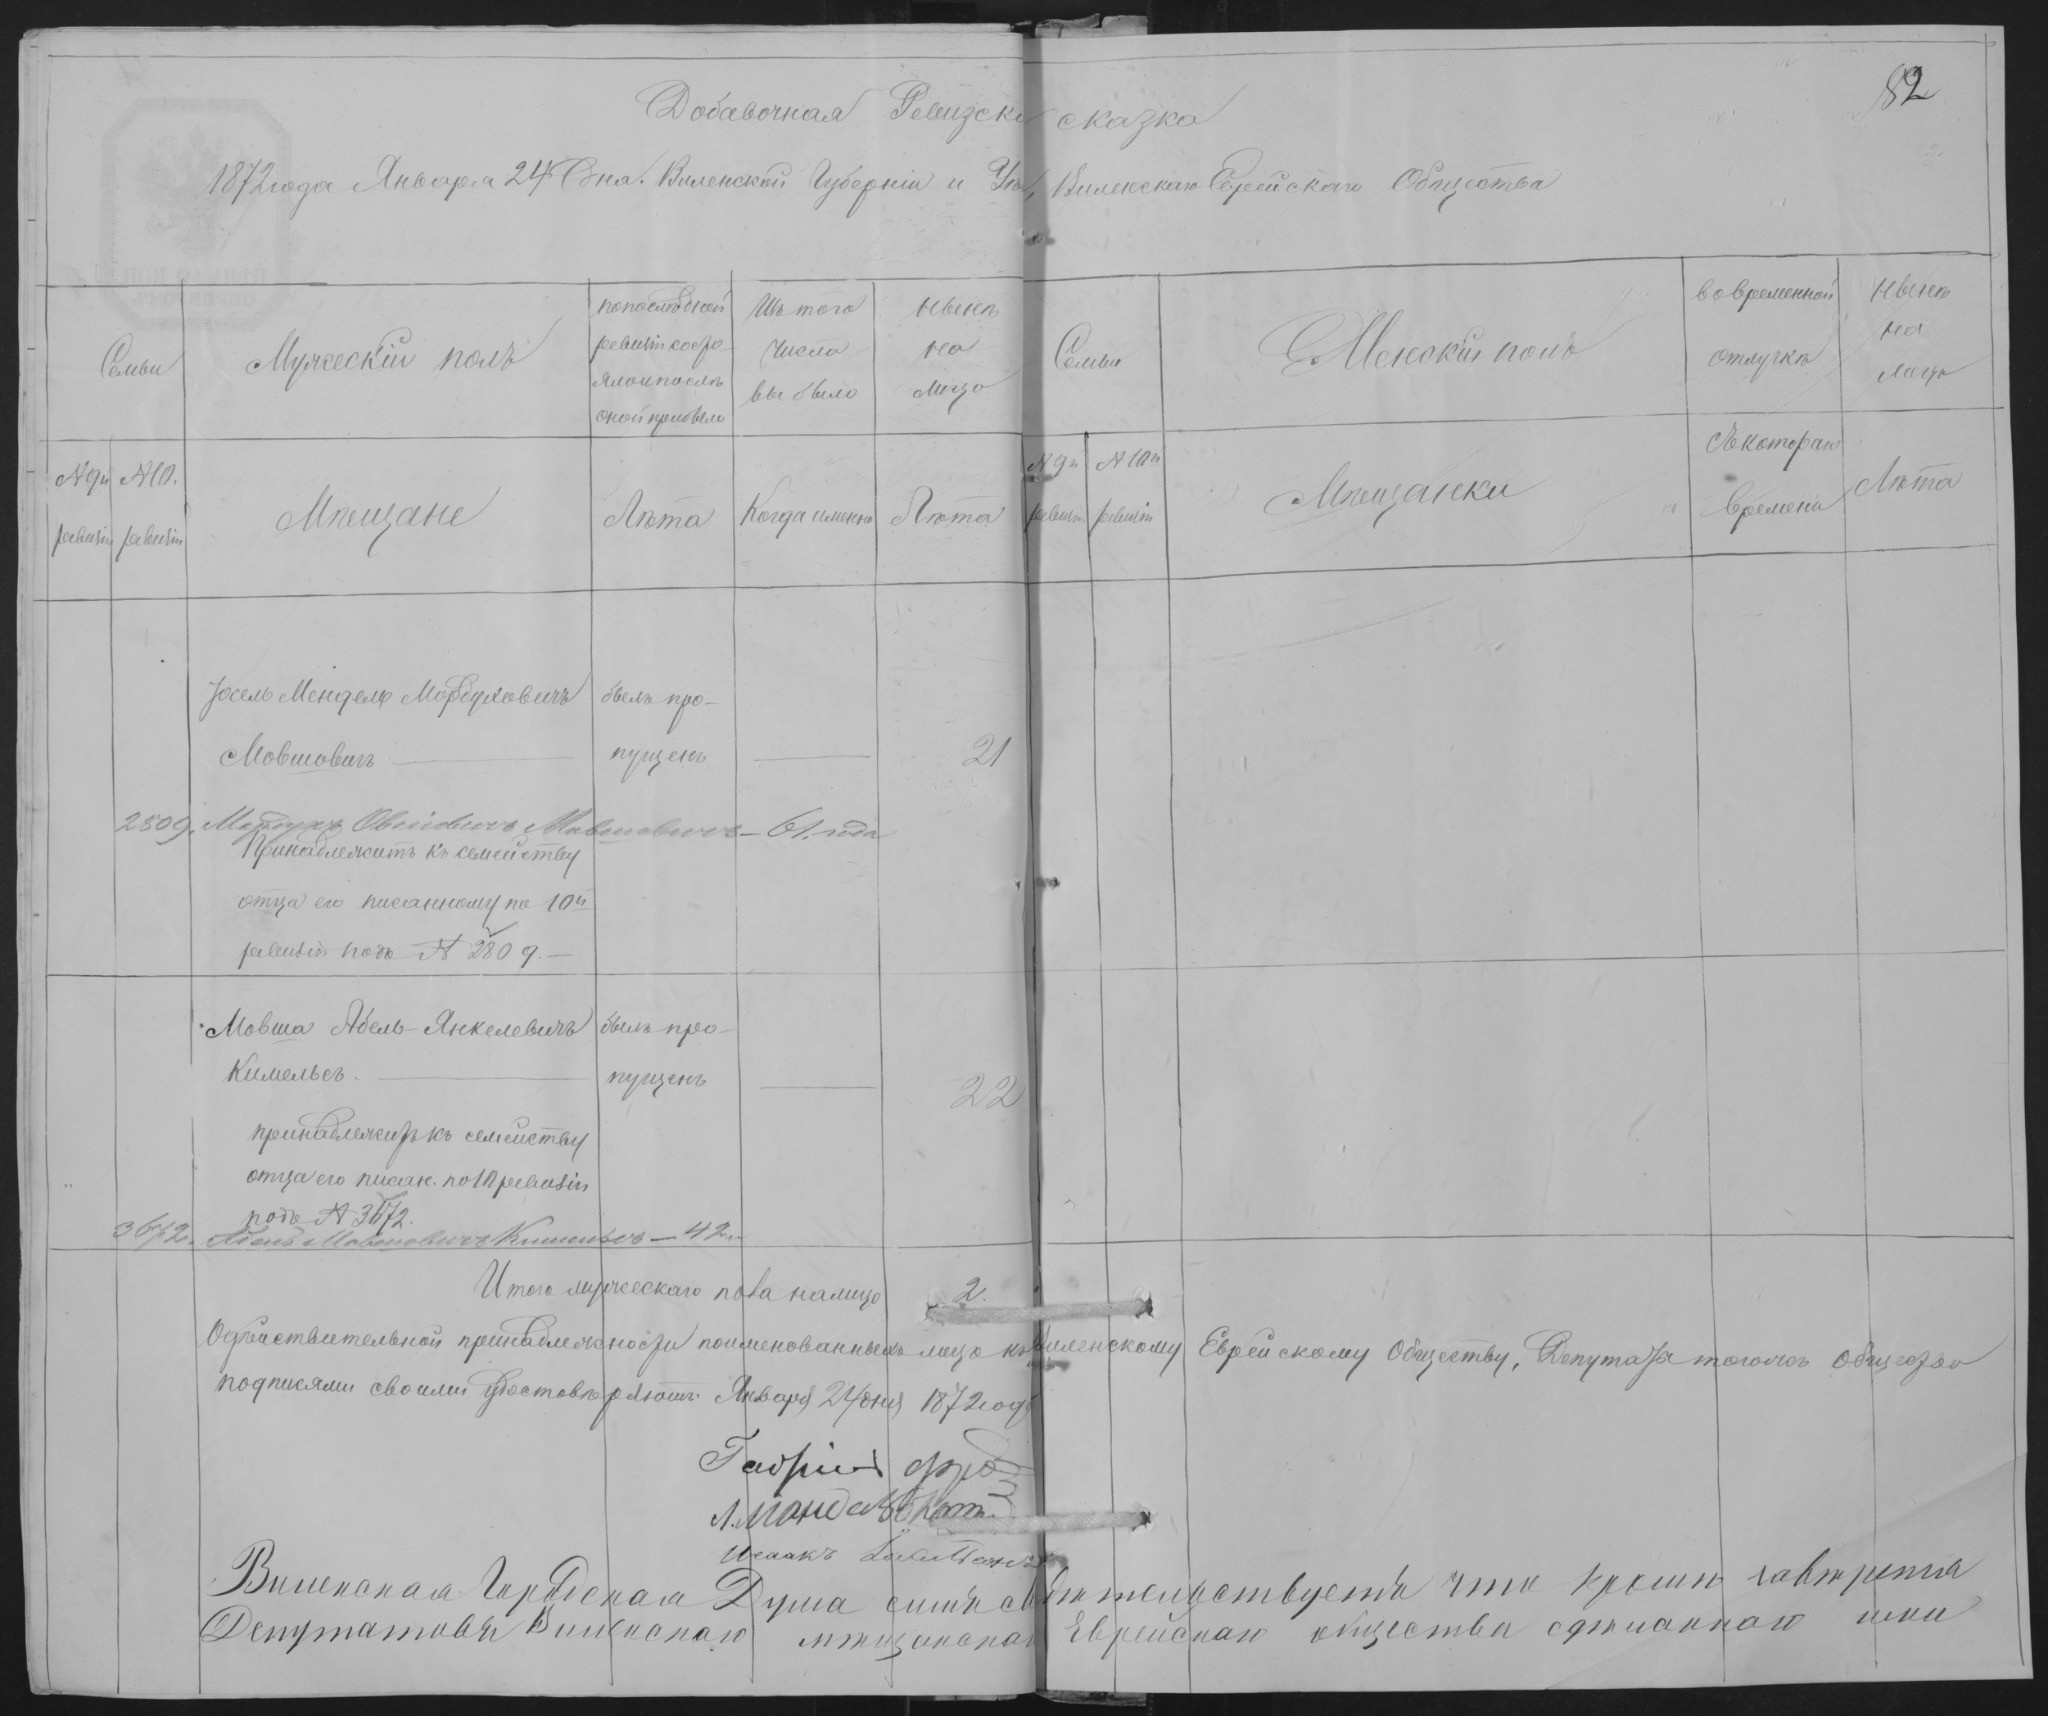 82
Добавочная Ревизск сказка
1872 года Января 24 дня. Виленской Губерніи и Уѣ. Виленскаго Еврейскаго Общества
Семьи
Мужескій полъ
попослѣдней
ревизіи состо-
яло и послѣ
оной прибыло
Изъ того
числа
выбыло
Нынѣ
на
лицо
Семьи
Женскій полъ
во временной
отлучкѣ
Нынѣ
на
лицо
N 9й
ревизіи
N 10.
ревизіи
Мѣщане
Лѣта
Когда именно
Лѣта
N 9й
ревизіи
N 10й
ревизіи
Мѣщанки
Съ котораго
времени
Лѣта
Іосель Мендель Мордуховичъ былъ про-
Мовшовичъ пущенъ 21
2809. Мордухъ Овсіовичъ Мовшовичъ – 61. года
Принадлежитъ къ семейству
отца его писанному по 10й
ревизіи подъ N 2809. –
Мовша Абель Янкелевичъ былъ про-
Кимельсъ. пущенъ 22
принадлежитъ къ семейству
отца его писан. по 10 ревизіи
подъ N 3672.
3672. Мовшовичъ Кимельсъ – 42.
Итого мужескаго пола налицо 2.
О дѣйствительной принадлежности поименованныхъ лицъ къ Виленскому Еврейскому Обществу, Депутаты тогожъ Общества
подписями своими удостовѣряютъ. Января 24 дня 1872 года
Габріил
Исаакъ
Виленская Городская Дума симъ свидѣтельствуетъ что кромѣ
Депутатовъ Виленскаго мѣщанскаго Еврейскаго общества сдѣланнаго ими